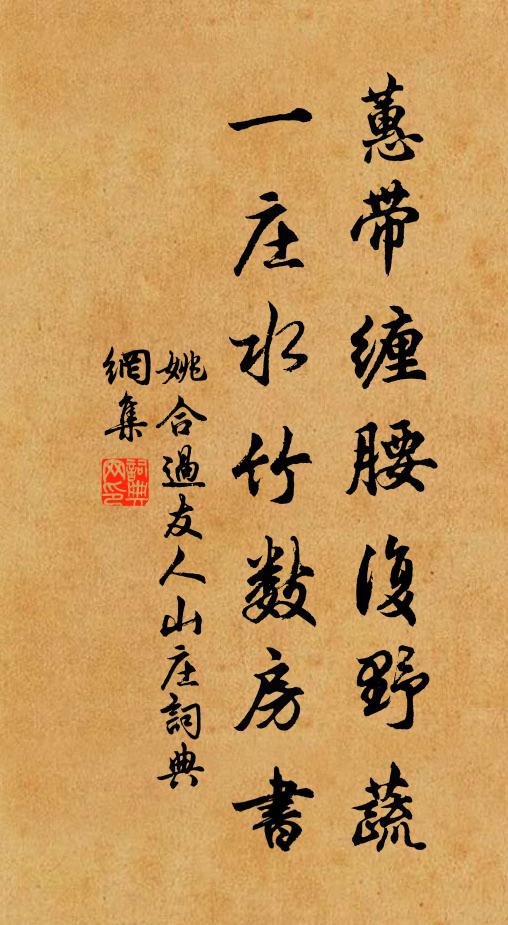 蕙带缠腰復野蔬
一庄水竹数房書
姚合過友人山庄詞典
網集
詞典
网印